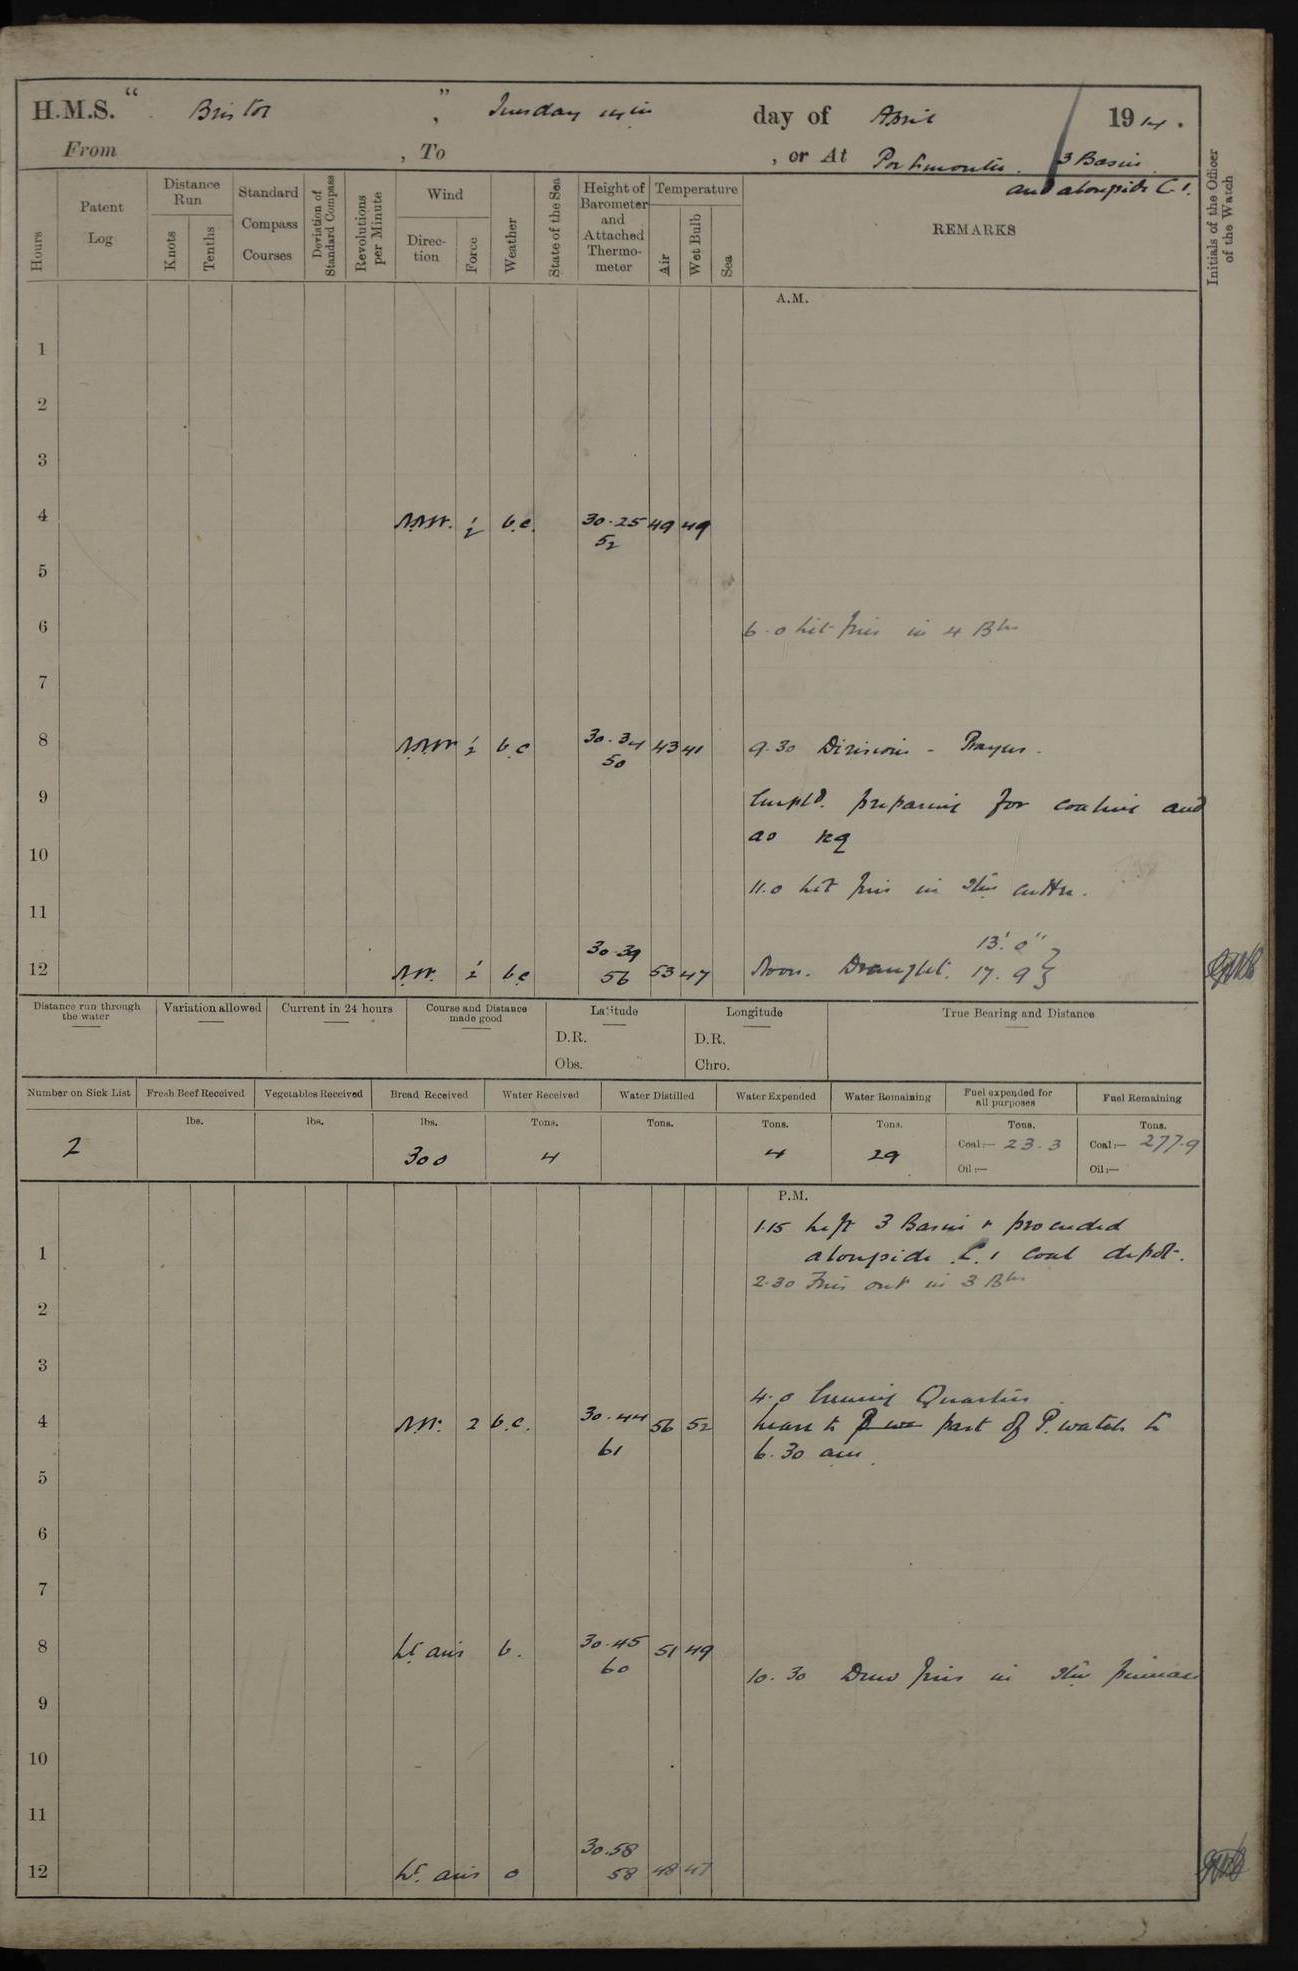 H.M.S. “ Bristol ” , Tuesday 14th day of April 1914.
From , To , or At Portsmouth. 3 Basin
and alongside C 1.
Hours
Patent Log
Distance Run
Knots
Tenths
Standard Compass Courses
Deviation of Standard Compass
Revolutions per Minute
Wind
Direc-tion
Force
Weather
State of the Sea
Height of Barometer and Attached Thermo-meter
Temperature
Air
Wet Bulb
Sea
REMARKS
Initials of the Officer of the Watch
A.M.
1
2
3
4 NNW. 1/2 b.c. 30.25 49 49
52
5
6 6.0 Lit fires in 4 Blrs
7
8 NNW 1/2 b.c 30.34 43 41 9.30 Divisions - Prayers.
50
9 Empld. preparing for coaling and
10 as req
11.0 Lit fires in Stm cutter.
11
30.39 13' 0"
12 NW. 1/2 b.c 56 53 47 Noon. Draught. 17. 9
Distance run through the water
Variation allowed
Current in 24 hours
Course and Distance made good
Latitude
D.R.
Obs.
Longitude
D.R.
Chro.
True Bearing and Distance
Number on Sick List
Fresh Beef Received
Vegetables Received
Bread Received
Water Received
Water Distilled
Water Expended
Water Remaining
Fuel expended for all purposes
Fuel Remaining
lbs. lbs. lbs. Tons. Tons. Tons. Tons. Tons. Tons.
2 300 4 4 29 Coal:— 23.3 Coal:— 277.9
Oil:— Oil:—
P.M.
1.15 Left 3 Basin & proceeded
1 alongside C. 1 coal depôt.
2.30 Fires out in 3 Blrs
2
3
4.0 Evening Quarters
4 NW. 2 b.c. 30.44 56 52 Leave to P wa part of P. watch to
61 6.30 am.
5
6
7
8 Lt airs b. 30.45 51 49
60
10.30 Drew fires in Stm pinnace
9
10
11
30.58
12 Lt. airs o 58 48 47